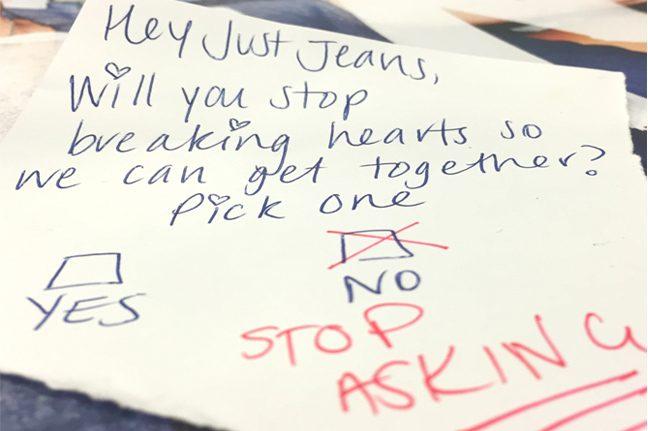 Hey Just Jeans,
Will you stop
breaking hearts so
we can get together?
Pick one
YES NO
STOP
ASKING